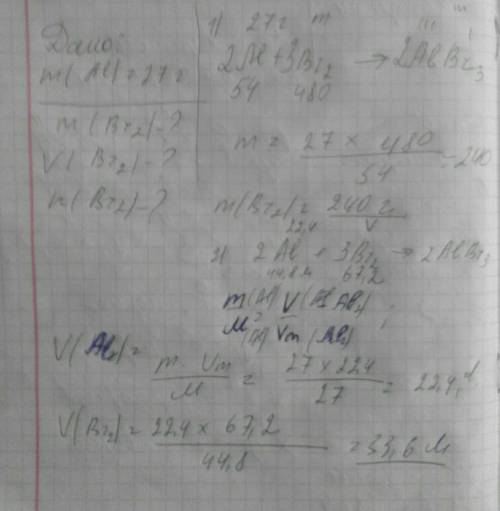 Дано:
m(Al)=27г
m(Br2)-?
V(Br2)-?
n(Br2)-?
1) 27г m
III I
2Al+3Br2 → 2AlBr3
54 480
m = 27 × 480
54
=240
m(Br2)= 240 г
22,4 V
2) 2Al + 3Br2 → 2AlBr3
44,8 67,2
m(Al) V
M Vm
V( )=
m · Vm
M
= 27 × 22,4
27
= 22,4
V(Br2)= 22,4 × 67,2
44,8
=33,6